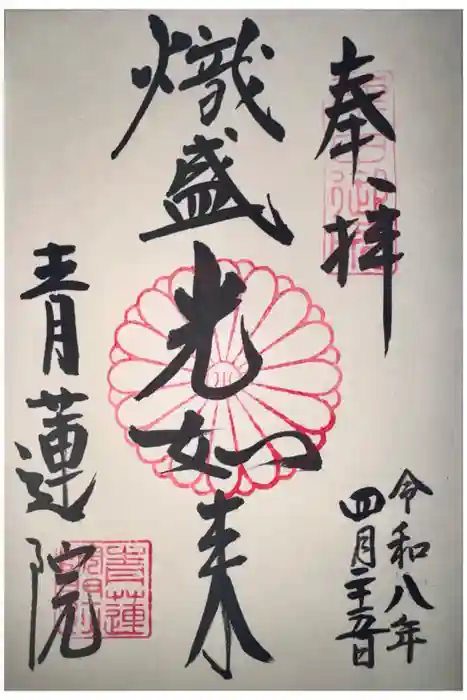 奉拝
熾盛光如来
青蓮院
令和八年
四月二十五日